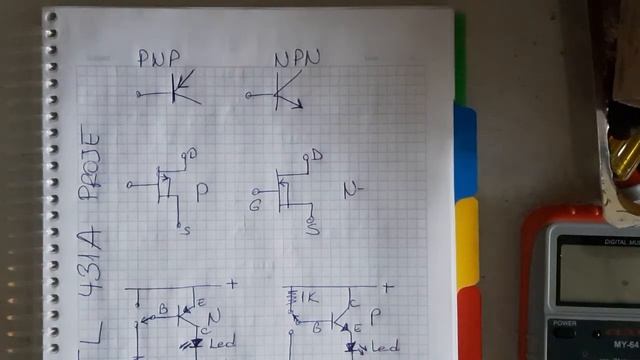 PNP NPN
TL 431A PROJE
D D
P G N-
S S
+ 1K +
B E N B C P
C Led E Led
DIGITAL MU
POWER MY-64